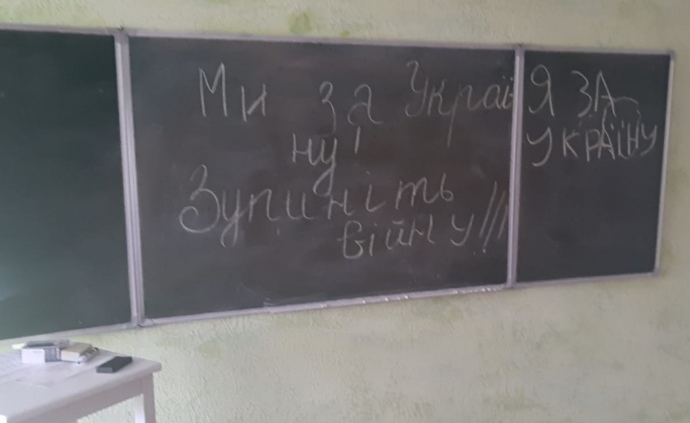 Ми за Украї
ну!
Зупиніть
війну!!!
Я ЗА
УКРАЇНУ